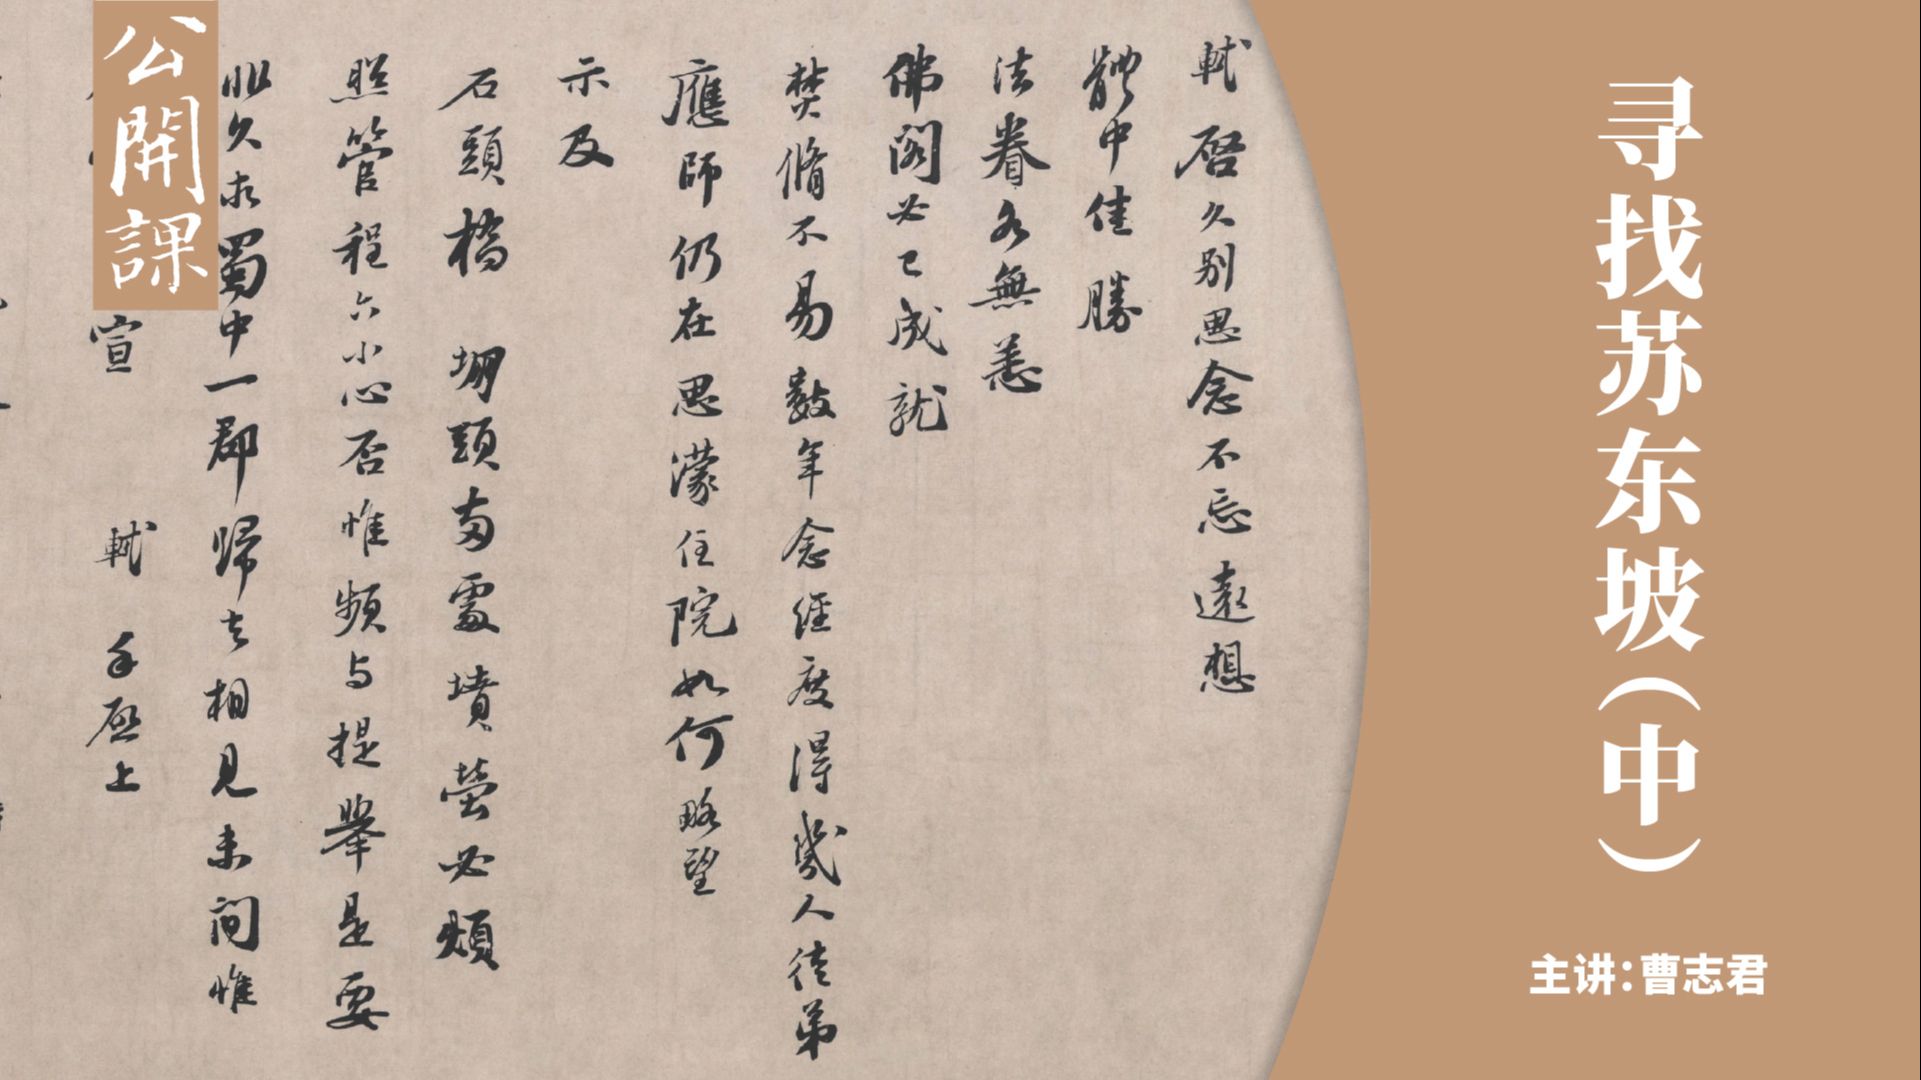 公開課
寻找苏东坡（中）
主讲：曹志君
軾啓久别思念不忘遠想
體中佳勝
法眷各無恙
佛閣必已成就
焚脩不易數年念經度得幾人徒弟
應師仍在思濛住院如何略望
示及
石頭橋 堋頭兩處墳塋必煩
照管程六小心否惟頻与提舉是要
非久求蜀中一郡歸去相見未間惟
宣 軾 手啓上